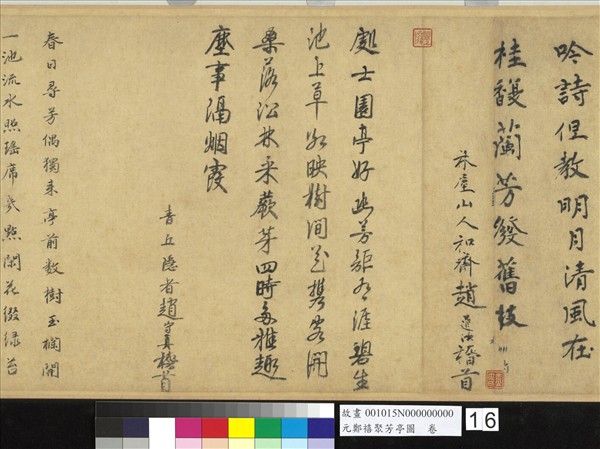 吟詩但教明月清風在
桂馥蘭芳發舊枝
山人和齋趙 稽首
處士園亭好幽芳距有涯碧生
池上草紅映樹間花攜客開
桑落沿林采蕨芽四時多雅趣
塵事隔烟霞
青丘隱者趙 稽首
春日尋芳偶獨來亭前數樹玉闌開
一池流水照瑤席幾點閑花綴綠苔
故畫 001015N000000000
元鄭禧聚芳亭圖 卷
16